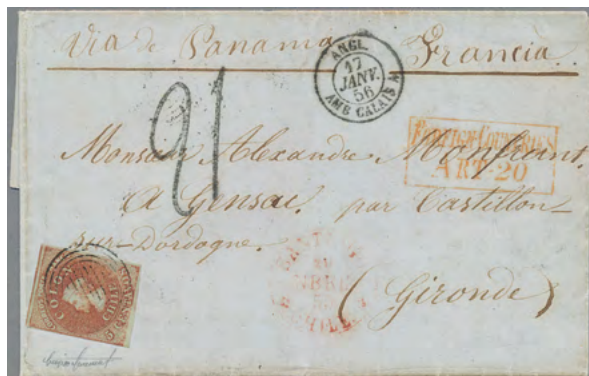 Via de Panama Francia
ANGL.
17
JANV.
56
AMB. CALAIS
21
FOREIGN COUNTRIES
ART-20
Monsieur Alexandre
A Gensac, par Castillon-
sur-Dordogne.
(Gironde)
COLON
CHILE